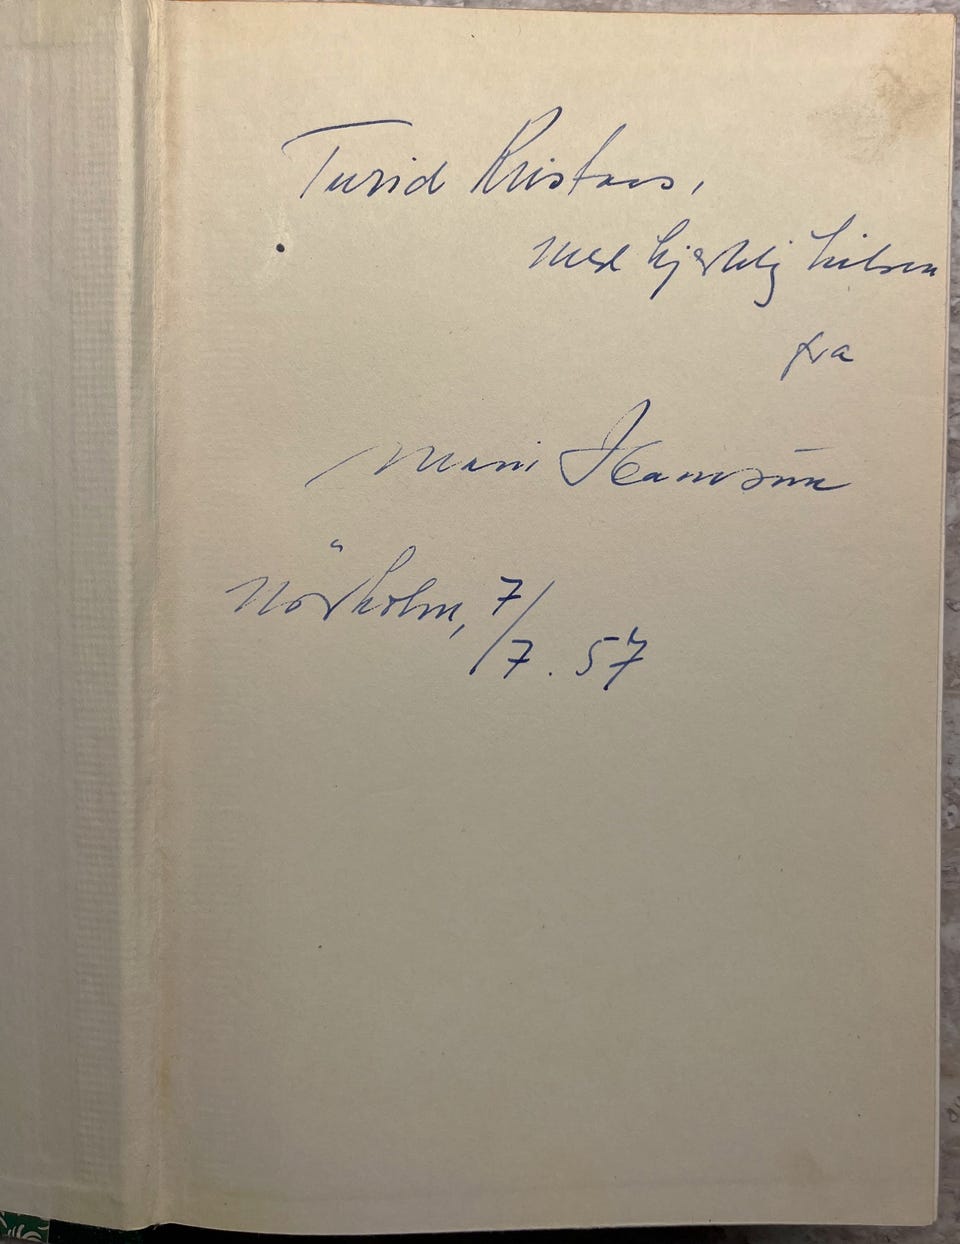 Turid Kristens,
med hjertelig hilsen
fra
Marie Hamsun
Nörholm, 7/7. 57